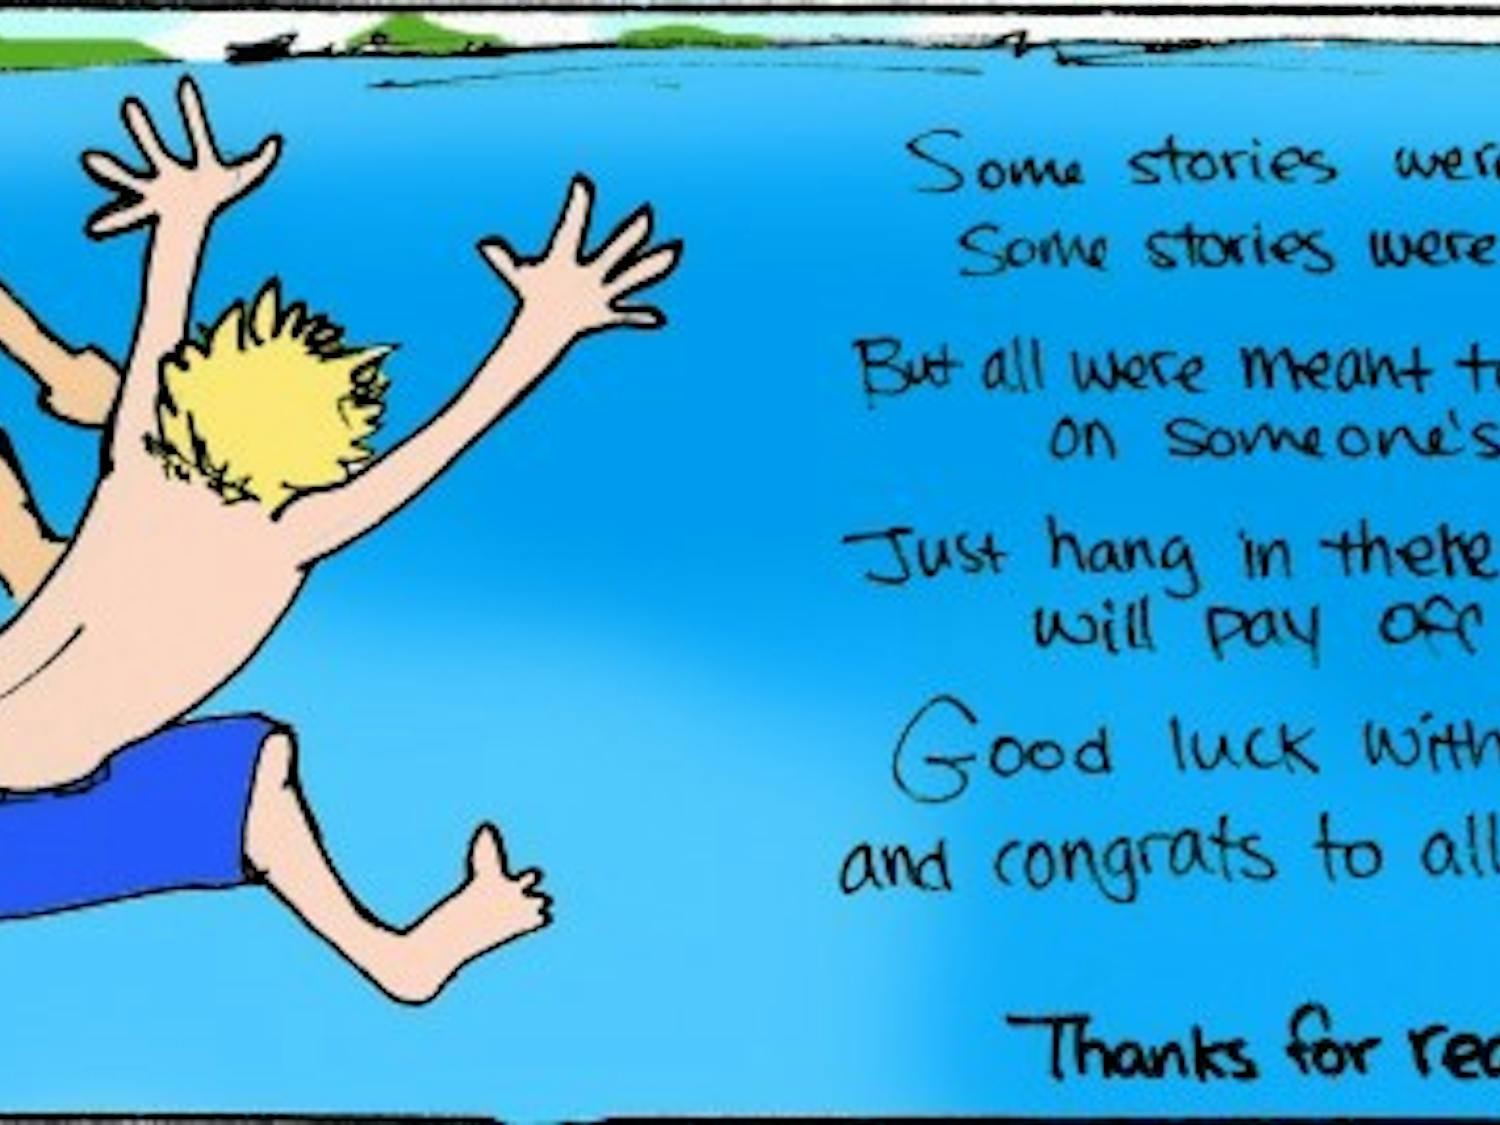 Some stories wer
Some stories were
But all were meant t
on someone's
Just hang in there
will pay off
Good luck with
and congrats to all
Thanks for rea